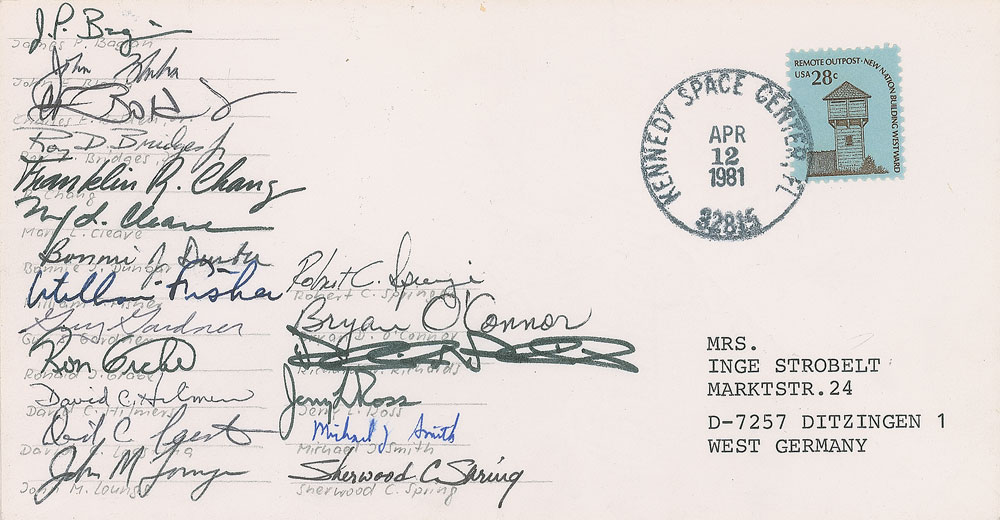 J.P. Bagian
James P. Bagian
John Blaha
John E. Blaha
CF Bolden Jr
Charles F.
Roy D. Bridges Jr
Roy D. Bridges, Jr.
Franklin R. Chang
Chang
M. L. Cleave
Mary L. Cleave
Bonnie J. Dunbar
Bonnie J. Dunbar
William Fisher
William F. Fisher
Guy Gardner
Guy S. Gardner
Ron Grabe
Ronald J. Grabe
David C. Hilmers
David C. Hilmers
David C. Leestma
David C. Leestma
John M Lounge
John M. Lounge
Robert C. Springer
Robert C. Springer
Bryan O'Connor
Bryan D. O'Connor
Richard N. Richards
Jerry L Ross
Jerry L. Ross
Michael J Smith
Michael J. Smith
Sherwood C. Spring
Sherwood C. Spring
KENNEDY SPACE CENTER, FL
APR
12
1981
32815
REMOTE OUTPOST · NEW NATION BUILDING WESTWARD
USA 28c
MRS.
INGE STROBELT
MARKTSTR.24
D-7257 DITZINGEN 1
WEST GERMANY